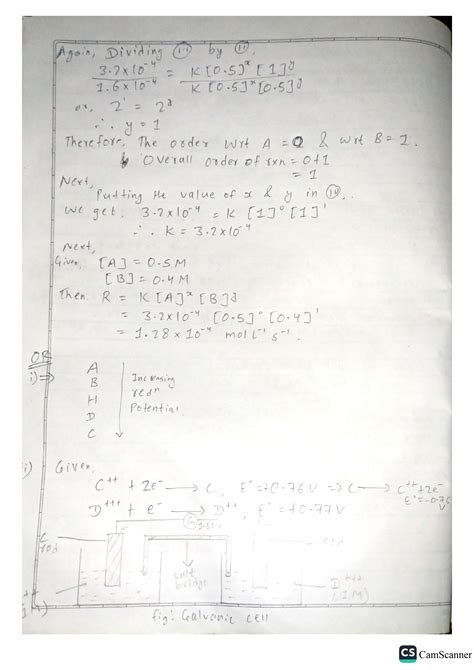 Again, Dividing (iii) by (ii).
3.2×10⁻⁴ / 1.6×10⁻⁴ = K[0.5]ˣ[1]ʸ / K[0.5]ˣ[0.5]ʸ
or, 2¹ = 2ʸ
∴ y = 1
Therefore, The order wrt A = 0 & wrt B = 1.
Overall order of rxn = 0+1
= 1
Next,
Putting the value of x & y in
we get, 3.2×10⁻⁴ = K [1]⁰ [1]¹
∴ K = 3.2×10⁻⁴
Next,
Given, [A] = 0.5M
[B] = 0.4M
Then R = K[A]ˣ[B]ʸ
= 3.2×10⁻⁴ [0.5]⁰ [0.4]¹
= 1.28×10⁻⁴ mol L⁻¹ s⁻¹.
OR
i)⇒
A
B
H
D
C
Increasing
redⁿ
Potential
ii) Given,
C⁺⁺ + 2e⁻ → C, E°=+0.76V ⇒ C → C⁺⁺+2e⁻
E°=-0.76V
D⁺⁺⁺ + e⁻ → D⁺⁺, E° = +0.77V
C
rod
rod
salt
bridge
D⁺⁺⁺
(1M)
fig: Galvanic cell
CS CamScanner